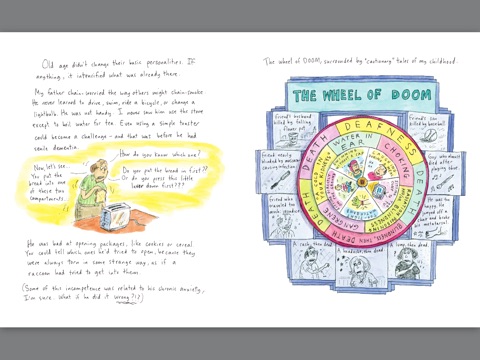 Old age didn't change their basic personalities. If
anything, it intensified what was already there.
My father chain-worried the way others might chain-smoke.
He never learned to drive, swim, ride a bicycle, or change a
lightbulb. He was not handy. I never saw him use the stove
except to boil water for tea. Even using a simple toaster
could become a challenge - and that was before he had
senile dementia.
How do you know which one?
Now, let's see...
You put the
bread into one
of these two
compartments.
Do you put the bread in first??
Or do you press this little
lever down first???
He was bad at opening packages, like cookies or cereal.
You could tell which ones he'd tried to open, because they
were always torn in some strange way, as if a
raccoon had tried to get into them.
(Some of this incompetence was related to his chronic anxiety,
I'm sure. What if he did it wrong?!?)
The wheel of DOOM, surrounded by "cautionary" tales of my childhood.
THE WHEEL OF DOOM
friend's husband
killed by falling
flower pot
friend's son
killed by baseball
DEAFNESS
DEATH
DEATH
DEATH
BLINDNESS, THEN DEATH
WATER IN
EAR
CHOKING
GANGRENE
friend nearly
blinded by
causing infection
guy who
after playing
the
friend who
too
much
He was too
happy. He
jumped off a
and broke
his metatarsal
A rash, then dead
A headache, then dead
A lump, then dead